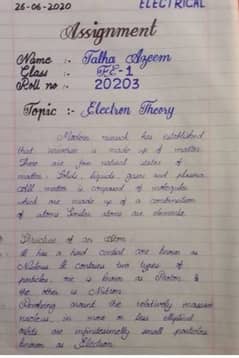 26-06-2020 ELECTRICAL
Assignment
Name :- Talha Azeem
Class :- FE-1
Roll no :- 20203
Topic :- Electron Theory
Modern research has established
that universe is made up of matter.
There are four natural states of
matter. Solids, liquids, gases and plasma.
All matter is composed of molecules
which are made up of a combination
of atoms. Similar atoms are elements.
Structure of an Atom
It has a hard central core known as
Nucleus. It contains two types of
particles, one is known as Proton &
the other is Nutron.
Revolving around the relatively massive
nucleus, in more or less elliptical
orbits are infinitesimally small particles
known as Electron.